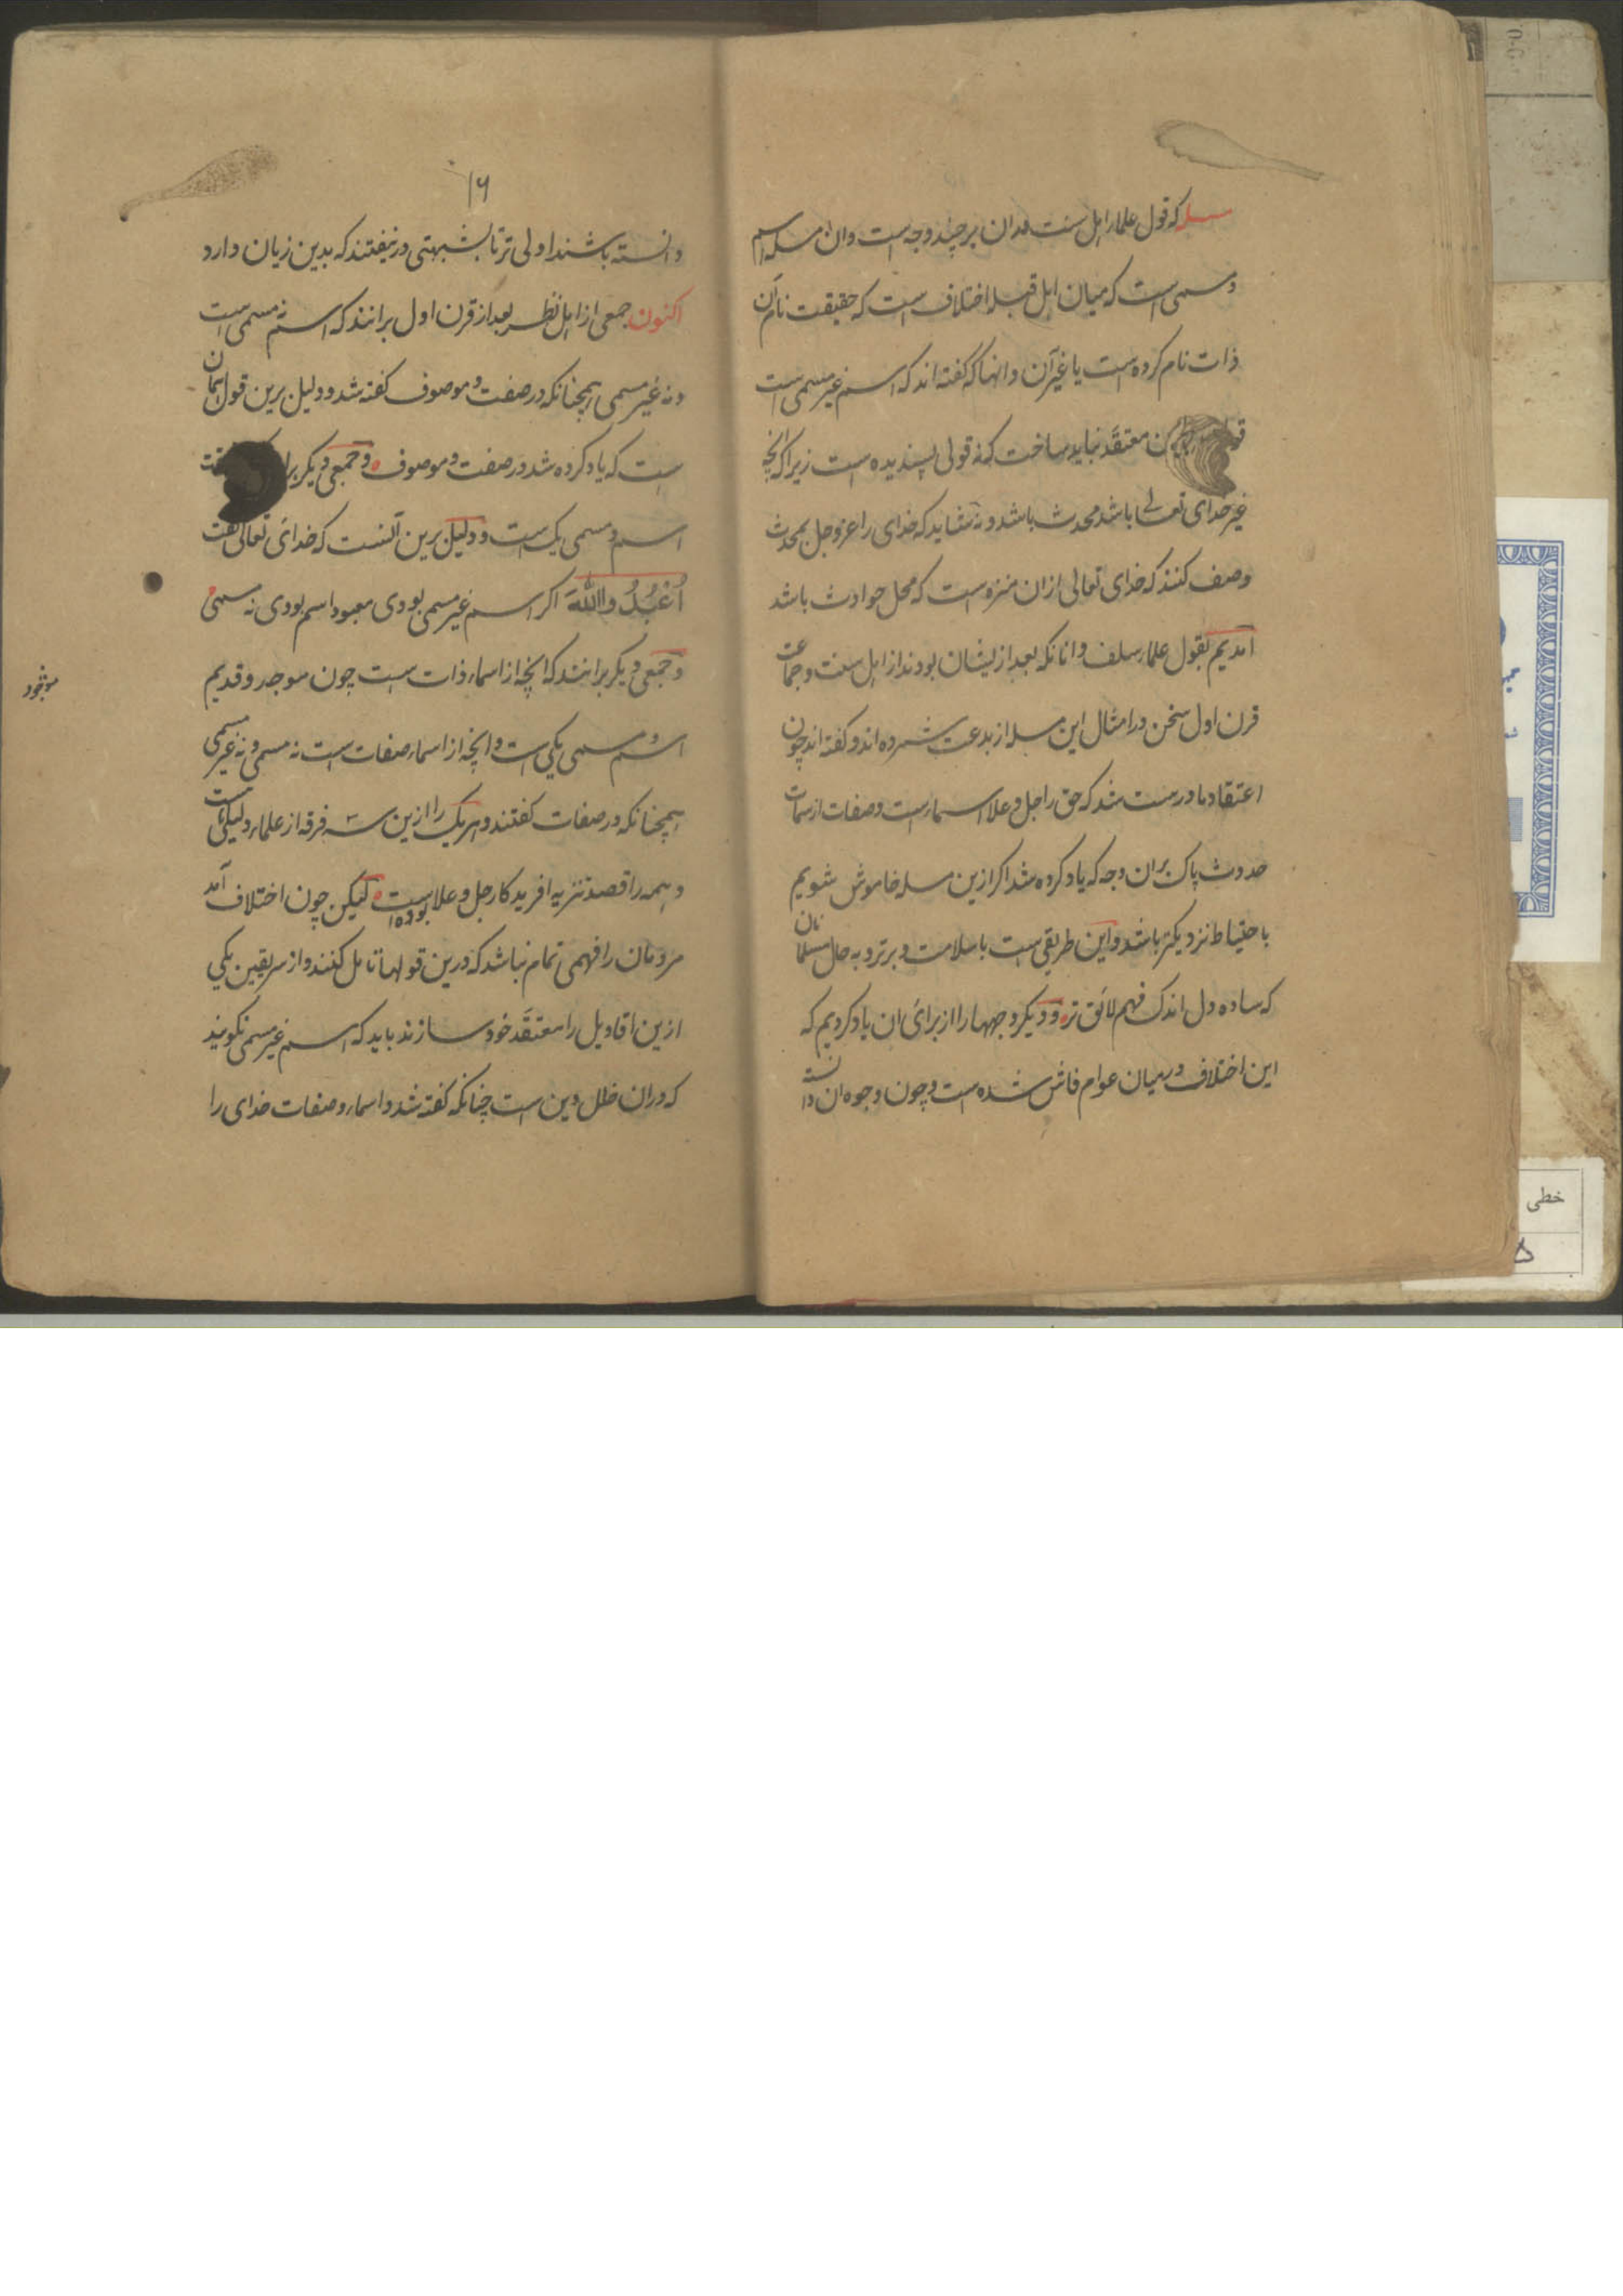 مسله که قول علماء اهل سنت دران بر چند وجه است وان مسله اسم
و مسمی است که میان اهل قبله اختلاف است که حقیقت نام آن
ذات نام کرده است یا غیر آن وانها که گفته اند که اسم غیر مسمی است
معتقد نباید ساخت که نه قولی پسندیده است زیرا که انچه
غیر خدای تعالی باشد محدث باشد و نشاید که خدای را عز وجل بمحدث
وصف کنند که خدای تعالی ازان منزه است که محل حوادث باشد
آمدیم بقول علماء سلف وانانکه بعد از ایشان بودند از اهل سنت و جماعت
قرن اول سخن در امثال این مسله از بدعت شمرده اند و گفته اند چون
اعتقاد ما درست شد که حق را جل وعلا اسماء است وصفات از سمات
حدوث پاک بران وجه که یاد کرده شد اکر ازین مسله خاموش شویم
باحتیاط نزدیکتر باشد واین طریقی است باسلامت و برتر و به حال مسلمانان
که ساده دل اندک فهم لائق تر و دیکر وجهها را از برای ان یاد کردیم که
این اختلاف در میان عوام فاش شده است و چون وجوه ان دانسته
۱۶
دانسته باشند اولی تر تا بشبهتی در نیفتند که بدین زیان دارد
اکنون جمعی از اهل نظر بعد از قرن اول برانند که اسم نه مسمی است
و نه غیر مسمی همچنانکه در صفت و موصوف گفته شد و دلیل برین قول همان
است که یاد کرده شد در صفت و موصوف و جمعی دیکر
اسم و مسمی یک است و دلیل برین آنست که خدای تعالی گفت
اُعْبُدُوااللهَ اکر اسم غیر مسمی بودی معبود اسم بودی نه مسمی
و جمعی دیکر برانند که انچه از اسماء ذات است چون موجد و قدیم
موجود
اسم و مسمی یکی است وانچه از اسماء صفات است نه مسمی و نه غیر مسمی
همچنانکه در صفات گفتند و هریک را ازین سه فرقه از علماء دلیلی است
و همه را قصد تنزیه افریدکار جل وعلا بوده است لیکن چون اختلاف آمد
مردمان را فهمی تمام نباشد که درین قولها تامل کنند و از سر یقین یکی
ازین اقاویل را معتقد خود سازند باید که اسم غیر مسمی نکویند
که دران خلل دین است چنانکه گفته شد و اسماء وصفات خدای را
خطی